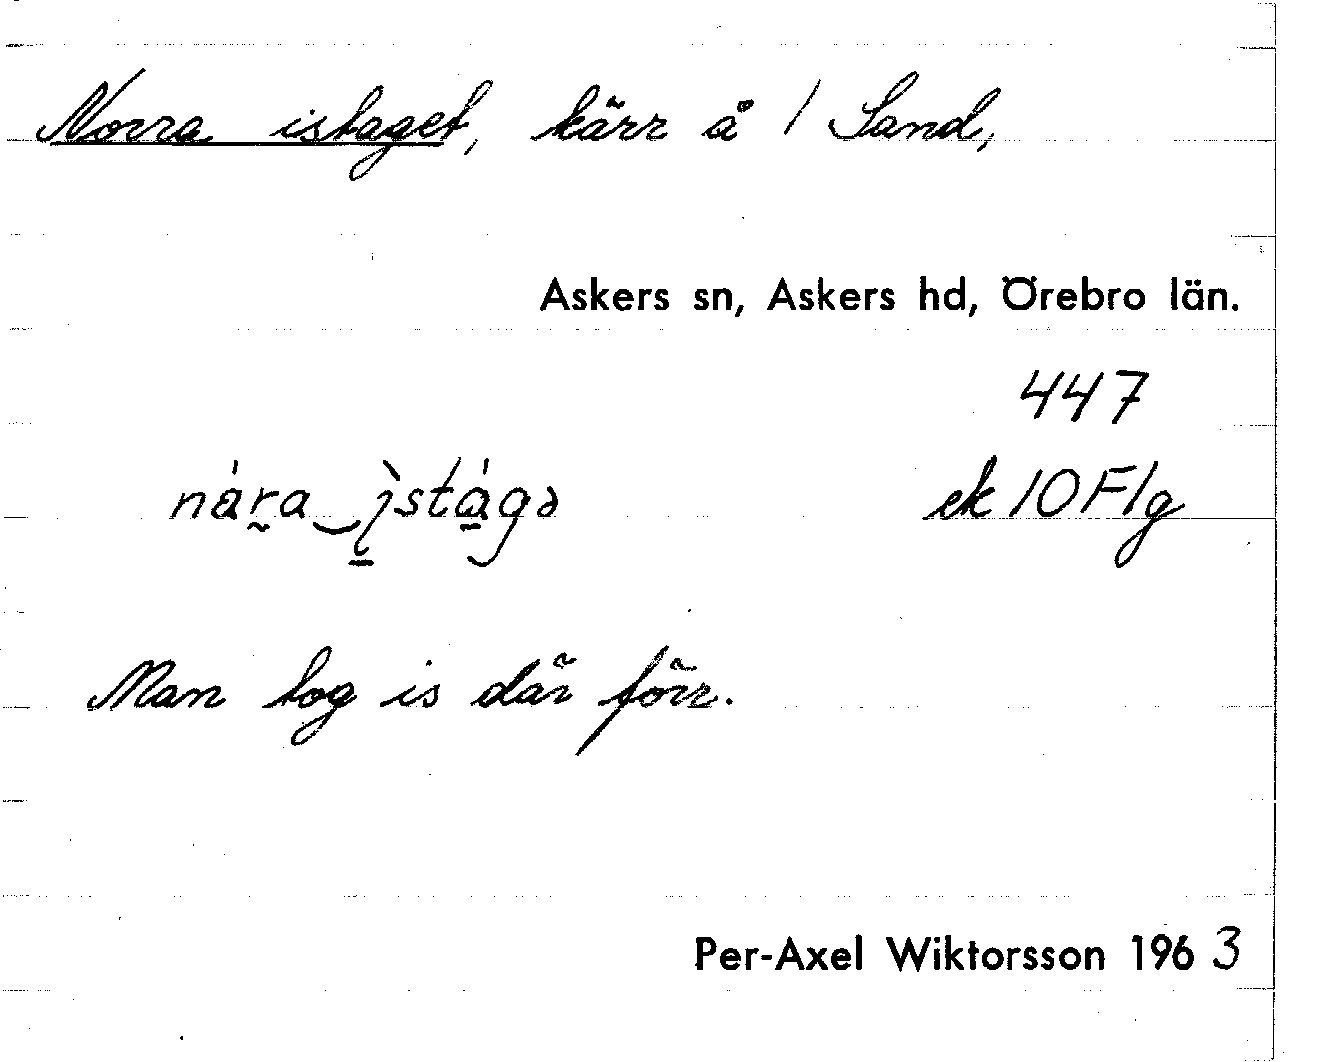 Norra istaget, kärr å 1 Sand,
Askers sn, Askers hd, Örebro län.
447
ek 10F1g
Man tog is där förr.
Per-Axel Wiktorsson 1963